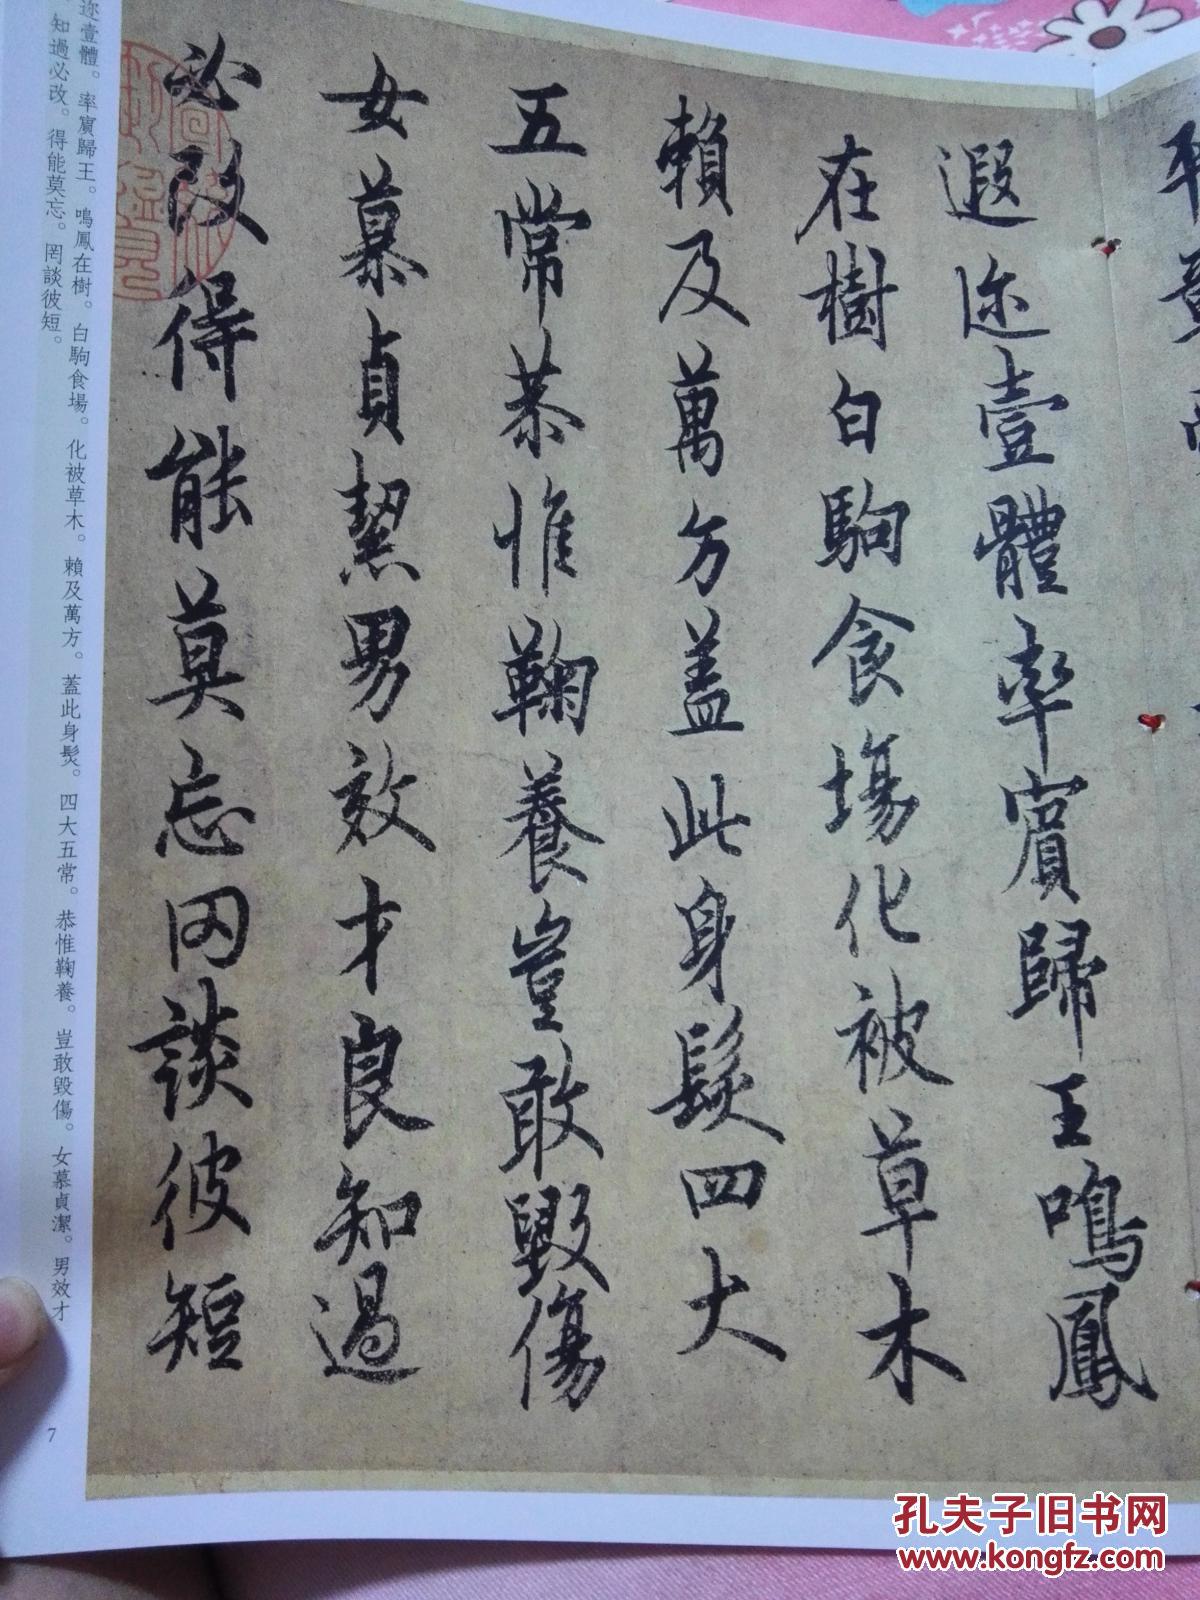 遐迩壹體率賓歸王鳴鳳
在樹白駒食場化被草木
賴及萬方盖此身髮四大
五常恭惟鞠養豈敢毀傷
女慕貞絜男效才良知過
必改得能莫忘罔談彼短
迩壹體。率賓歸王。鳴鳳在樹。白駒食場。化被草木。賴及萬方。蓋此身髮。四大五常。恭惟鞠養。豈敢毀傷。女慕貞潔。男效才
知過必改。得能莫忘。罔談彼短。
7
孔夫子旧书网
www.kongfz.com